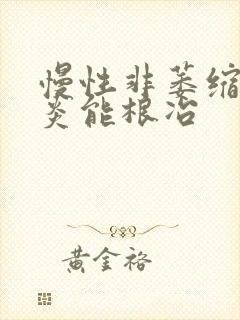 慢性非萎缩
炎能根治
黄金裕